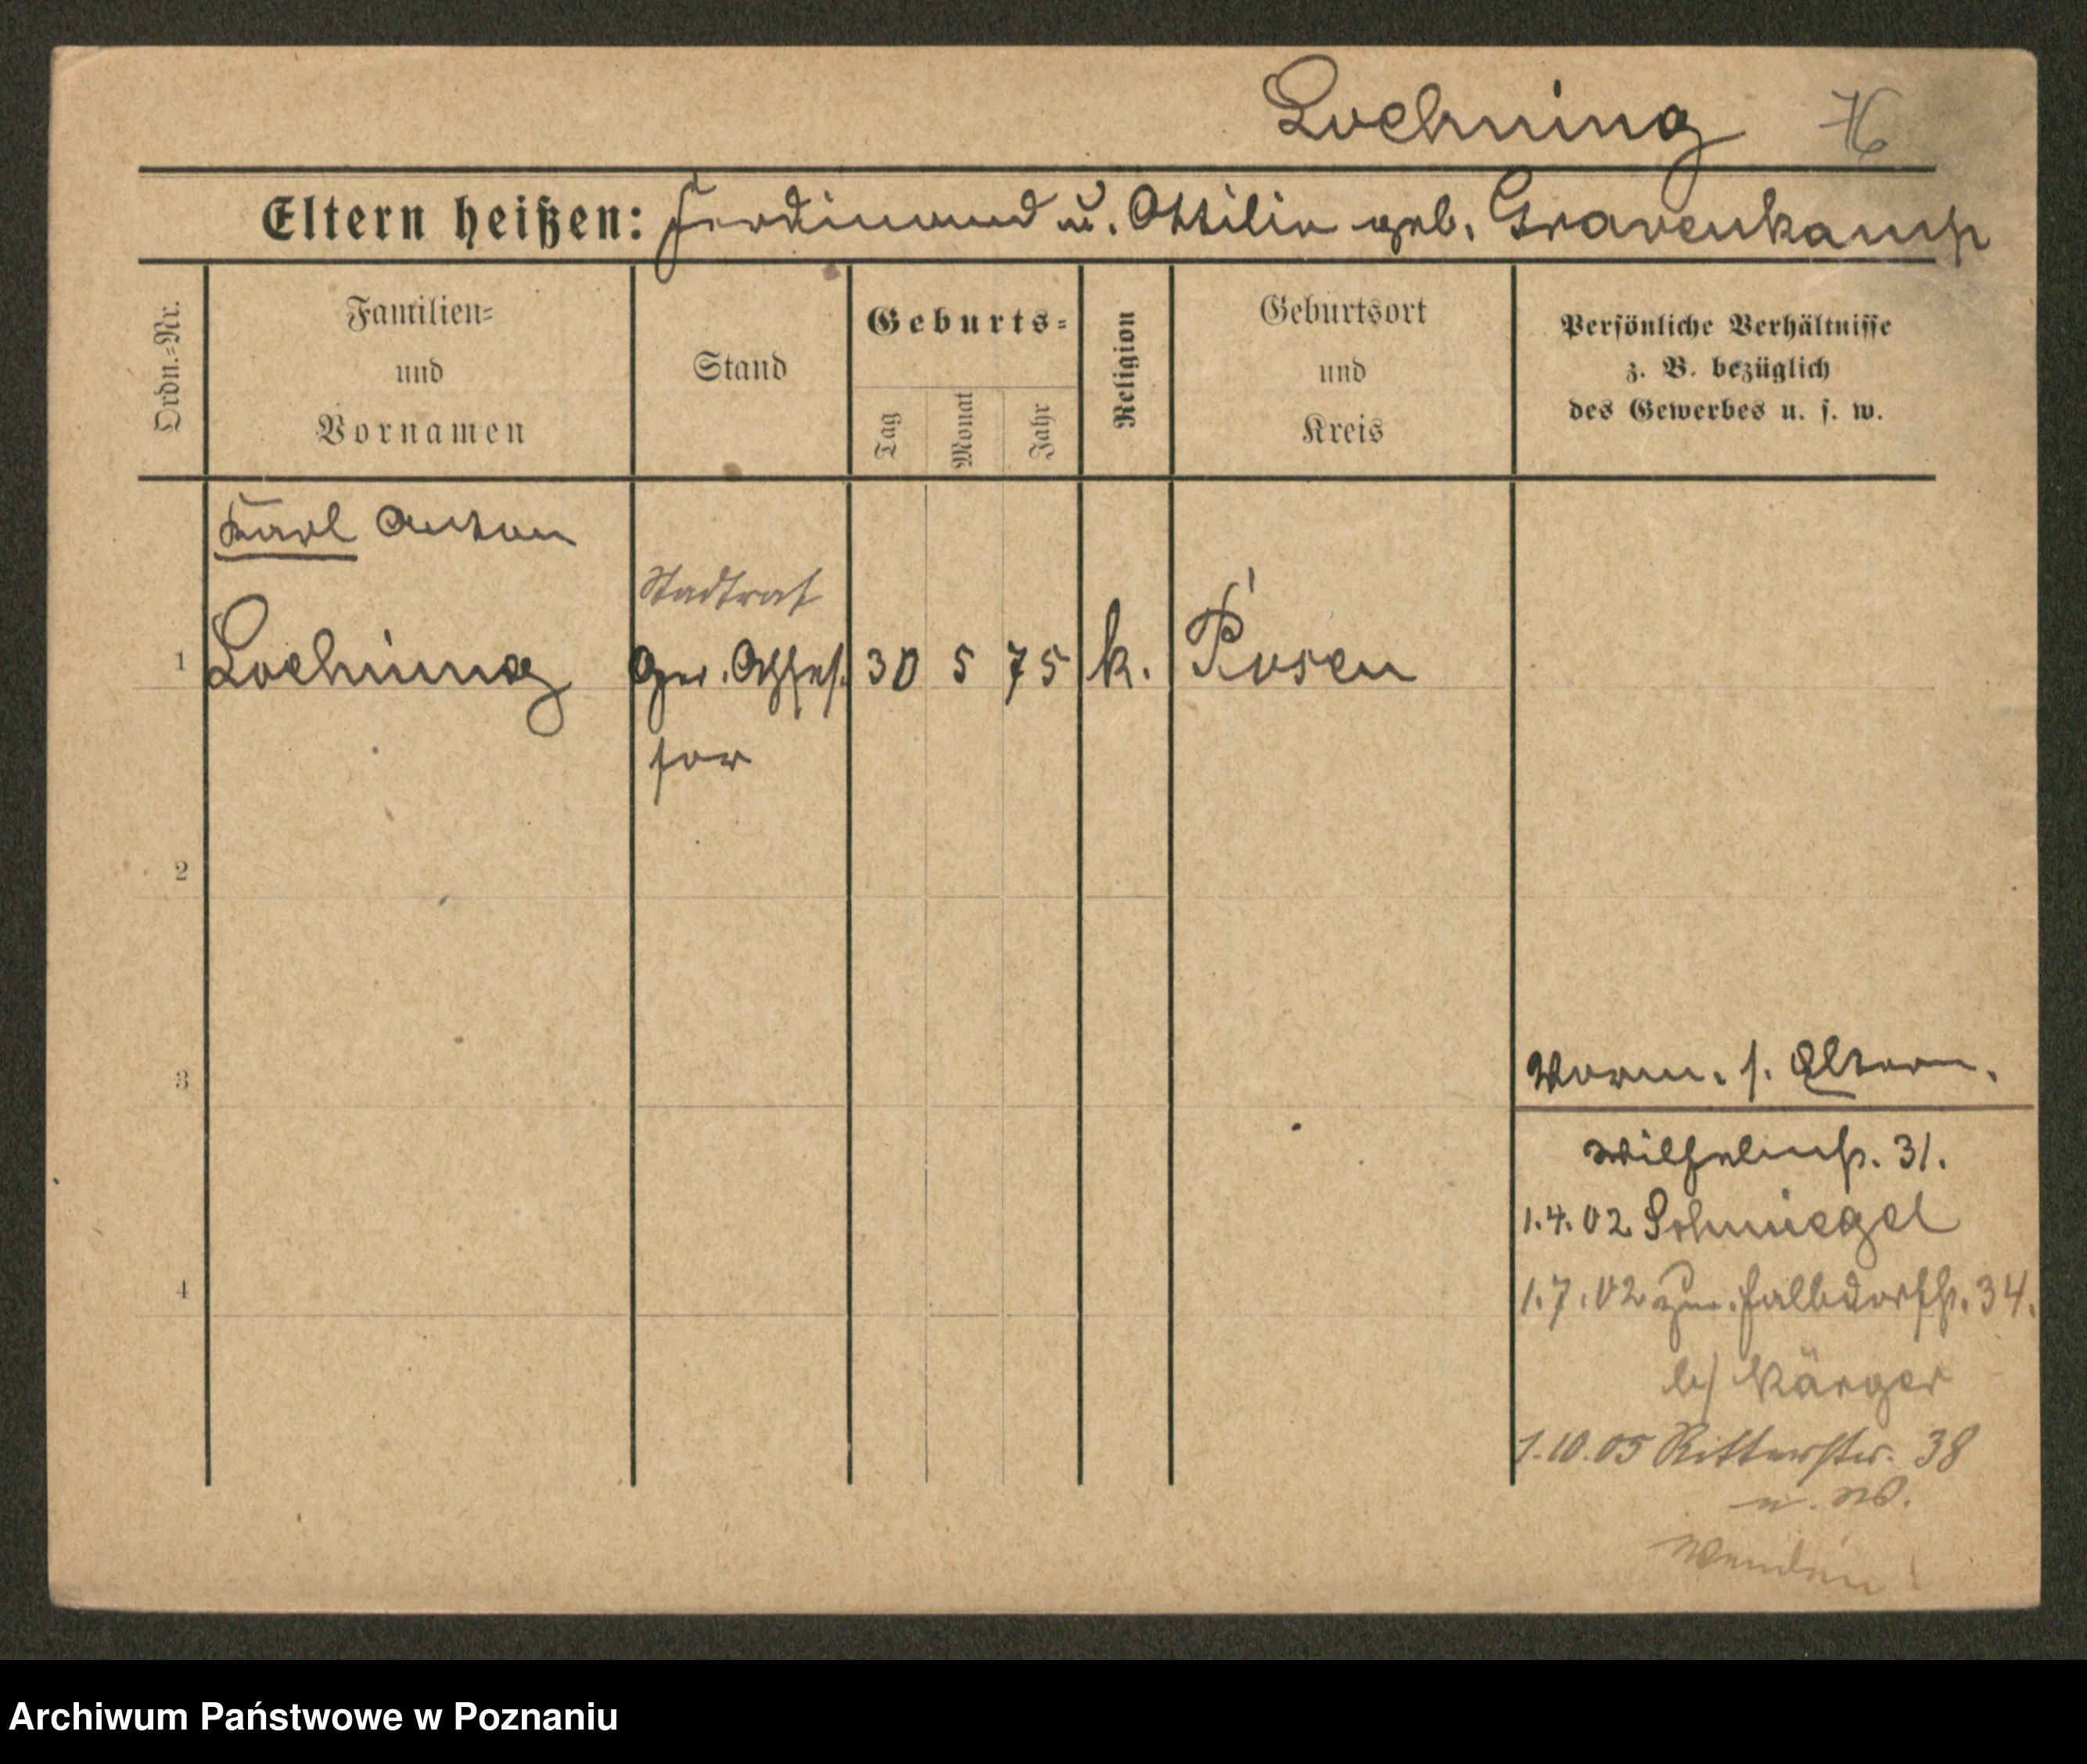 Loehning 76
Eltern heißen: Ferdinand u. Ottilie geb. Gravenkamp
Ordn.=Nr.
Familien=
und
Vornamen
Stand
Geburts=
Tag
Monat
Jahr
Religion
Geburtsort
und
Kreis
Persönliche Verhältnisse
z. B. bezüglich
des Gewerbes u. s. w.
Karl Anton
Stadtrat
1 Loehning Ger. Assess 30 5 75 k. Posen
sor
2
3
Vorm. s. Eltern.
Wilhelmst. 31.
1.4.02 Schmiegel
4
1.7.02 34.
b/ Kärger
1.10.05 Ritterstr. 38
u. W.
Wenden!
Archiwum Państwowe w Poznaniu